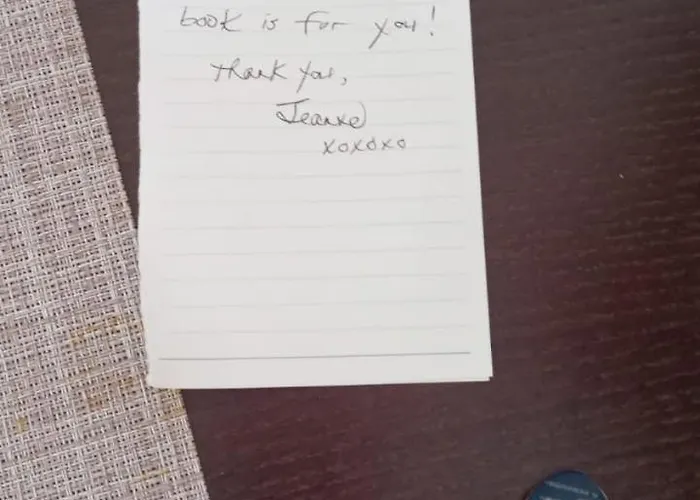 book is for you!
Thank you,
Jeanne
xoxoxo